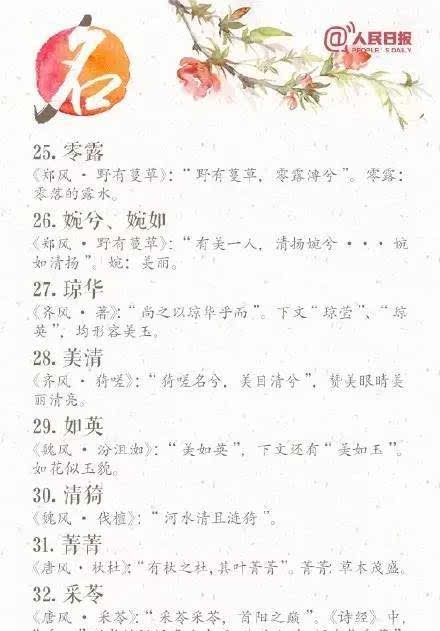 名
@人民日报
PEOPLE'S DAILY
25. 零露
《郑风·野有蔓草》：“野有蔓草，零露漙兮”。零露：
零落的露水。
26. 婉兮、婉如
《郑风·野有蔓草》：“有美一人，清扬婉兮···婉
如清扬”。婉：美丽。
27. 琼华
《齐风·著》：“尚之以琼华乎而”。下文“琼莹”、“琼
英”，均形容美玉。
28. 美清
《齐风·猗嗟》：“猗嗟名兮，美目清兮”，赞美眼睛美
丽清亮。
29. 如英
《魏风·汾沮洳》：“美如英”，下文还有“美如玉”。
如花似玉貌。
30. 清猗
《魏风·伐檀》：“河水清且涟猗”。
31. 菁菁
《唐风·杕杜》：“有杕之杜，其叶菁菁”。菁菁：草木茂盛。
32. 采苓
《唐风·采苓》：“采苓采苓，首阳之巅”。《诗经》中，